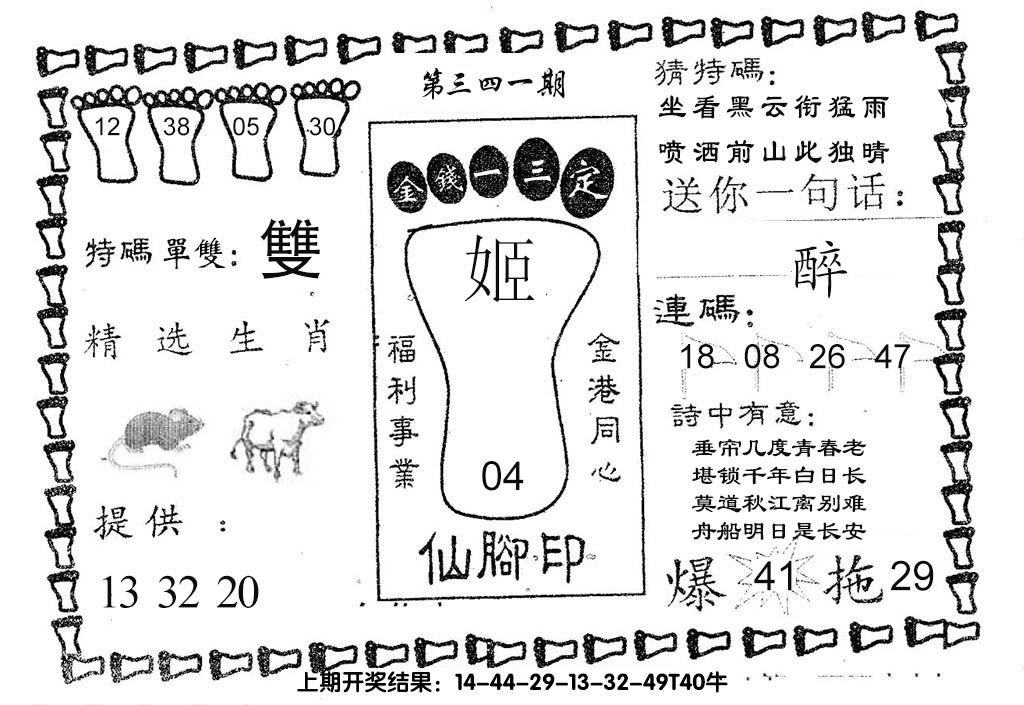 第三四一期
12 38 05 30
特碼單雙：雙
精选生肖
提供：
13 32 20
金錢一三定
姬
福利事業
金港同心
04
仙腳印
猜特碼：
坐看黑云衔猛雨
喷洒前山此独晴
送你一句话：
醉
連碼：
18 08 26 47
詩中有意：
垂帘几度青春老
堪锁千年白日长
莫道秋江离别难
舟船明日是长安
爆 41 拖 29
上期开奖结果：14-44-29-13-32-49T40牛